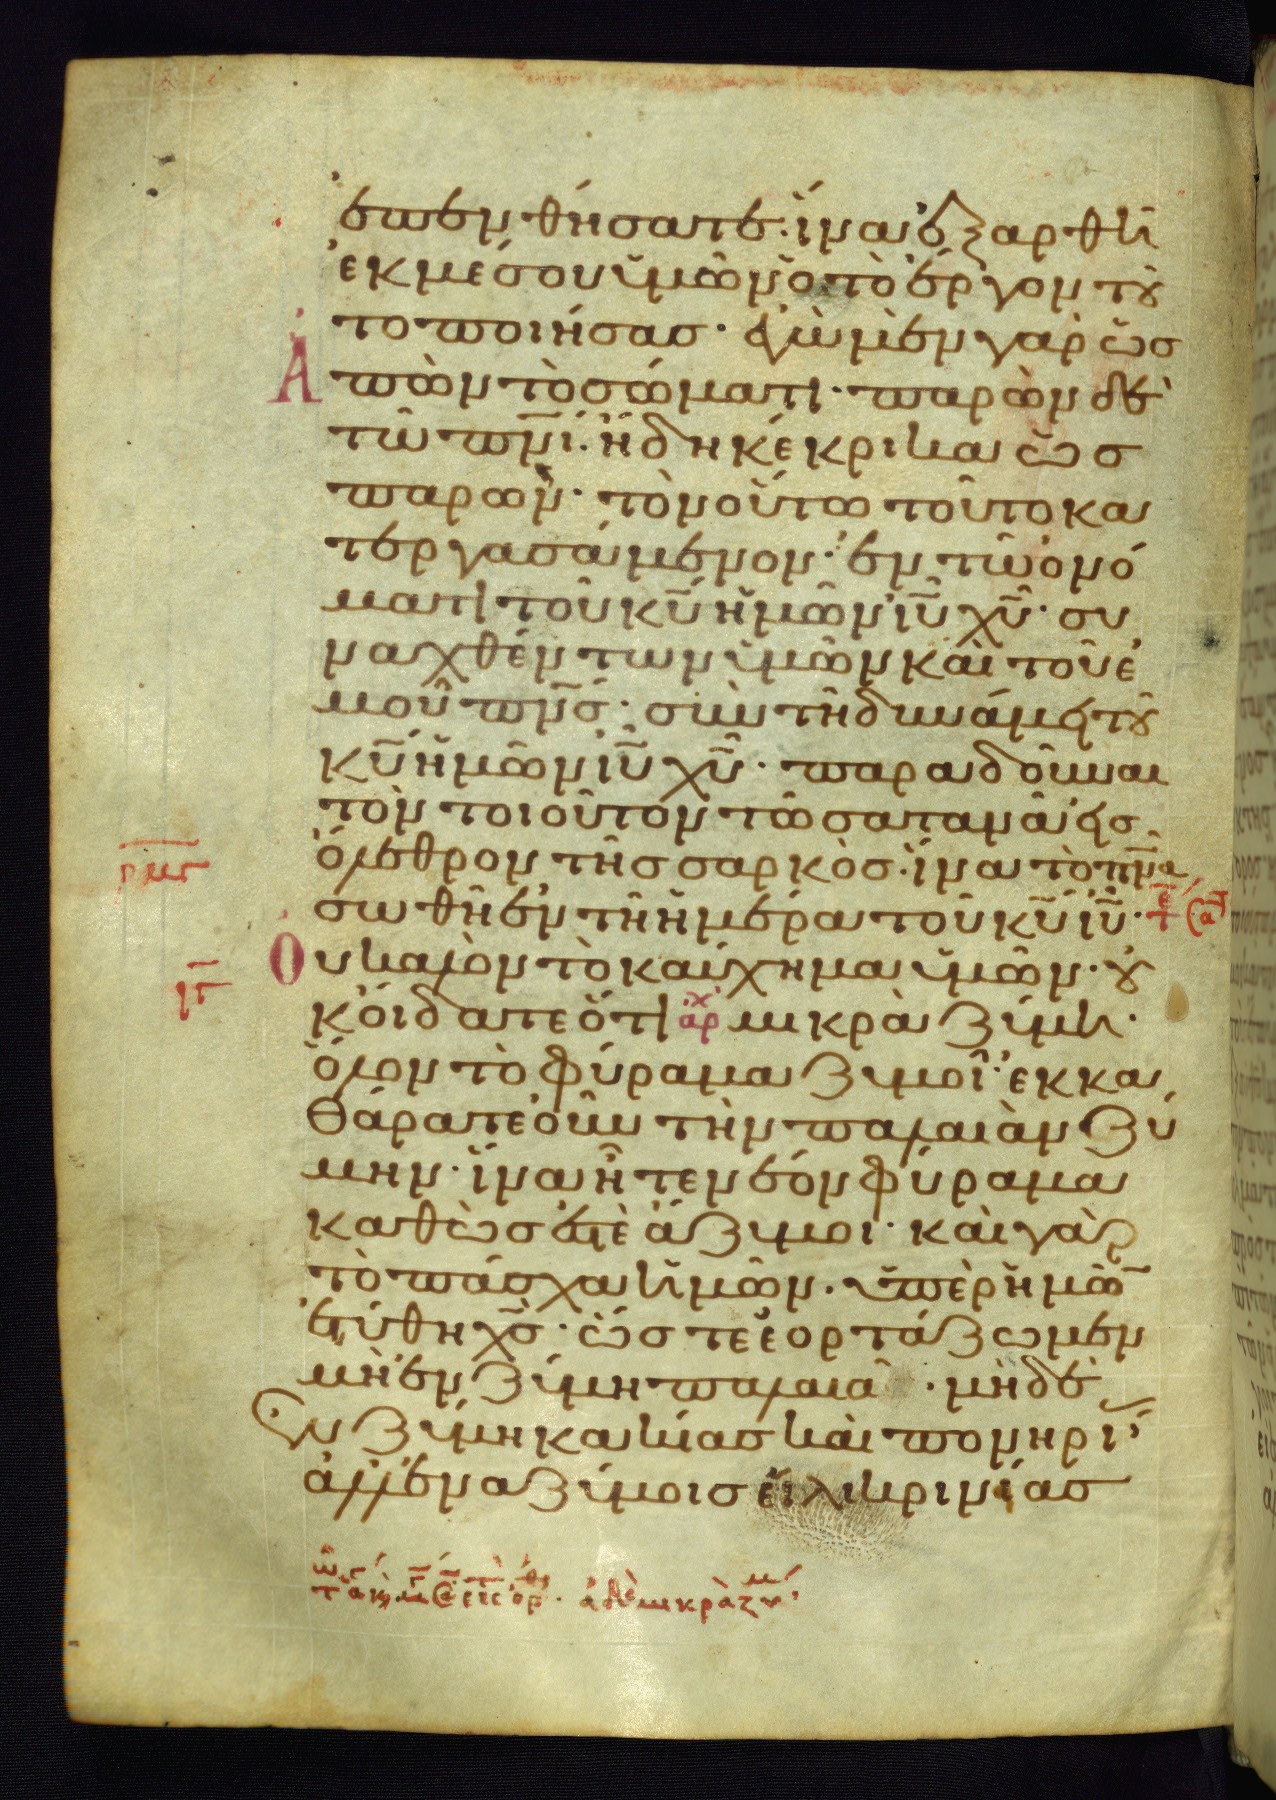 ἐπενθήσατε· ἵνα ἐξαρθῆ
ἐκ μέσου ὑμῶν ὁ τὸ ἔργον τȣ
το ποιήσας· ἐγὼ μὲν γὰρ ὡς
Ἀπὼν τὸ σώματι· παρὼν δὲ
τῶ πν̅ι· ἤδη κέκρικα ὡς
παρών· τὸν οὕτω τοῦτο κα
τεργασάμενον· ἐν τῶ ὀνό
ματι τοῦ κ̅υ ἡμῶν ι̅υ χ̅υ· συ
ναχθέντων ὑμῶν καὶ τοῦ ἐ
μοῦ πν̅ς· σὺν τῆ δυνάμει τȣ
κ̅υ ἡμῶν ι̅υ χ̅υ· παραδοῦναι
τὸν τοιοῦτον τῶ σατανᾶ εἰς
ρμς ὄλεθρον τῆς σαρκὸς· ἵνα τὸ πν̅α
σωθῆ ἐν τῆ ἡμέρα τοῦ κ̅υ ι̅υ·
Οὐ καλὸν τὸ καύχημα ὑμῶν· ȣ
κ οἴδατε ὅτι αρχ μικρὰ ζύμη·
ὅλον τὸ φύραμα ζυμοῖ· ἐκκα
θάρατε οὖν τὴν παλαιὰν ζύ
μην· ἵνα ἦτε νέον φύραμα
καθὼς ἐστὲ ἄζυμοι· καὶ γὰρ
τὸ πάσχα ἡμῶν· ὑπὲρ ἡμῶ̅
ἐτύθη χ̅ς· ὥστε ἑορτάζωμεν
μὴ ἐν ζύμη παλαιᾶ· μηδὲ
ἐν ζύμη κακίας καὶ πονηρί
ἀλλ' ἐν ἀζύμοις εἰλικρινίας
ἀδε μικρὰ ζυμ